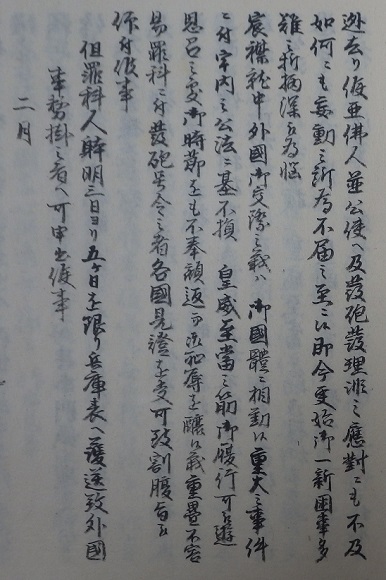 逃去り候亜佛人並公使へ及發砲發理非之應對ニも不及
如何ニも妄動之所為不届之至ニ候即今更始御一新國事多
難之折柄深為悩
宸襟就中外國御交際之義ハ御國體ニ相動候重大之事件
ニ付宇内之公法ニ基不損 皇威至當之筋御履行可被遊
思召之處御時節をも不奉顧返可恥辱を醸候義重畳不容
易罪科ニ付發砲号令之者各國見證を受可致割腹旨被
仰付候事
但罪科人解明三日ヨリ五ケ日を限り兵庫表へ護送致外國
事務掛之者へ可申出候事
二月